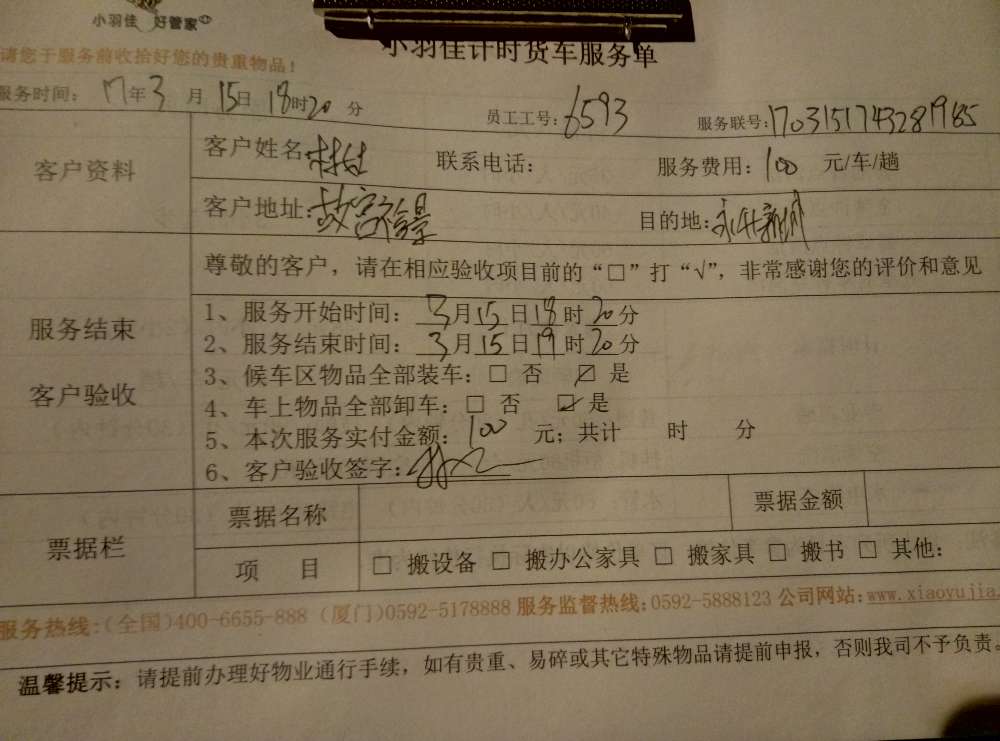 小羽佳 好管家
小羽佳计时货车服务单
请您于服务前收拾好您的贵重物品！
服务时间： 17年3月15日18时20分 员工工号：6593 服务联号：1703151743281985
客户资料
客户姓名： 联系电话： 服务费用：100 元/车/趟
客户地址：故宫裕景 目的地：永升新城
尊敬的客户，请在相应验收项目前的“□”打“√”，非常感谢您的评价和意见
服务结束
客户验收
1、服务开始时间：3月15日18时20分
2、服务结束时间：3月15日19时20分
3、候车区物品全部装车：□ 否 ☑ 是
4、车上物品全部卸车：□ 否 ☑ 是
5、本次服务实付金额：100 元；共计 时 分
6、客户验收签字：
票据栏
票据名称 票据金额
项 目 □ 搬设备 □ 搬办公家具 □ 搬家具 □ 搬书 □ 其他：
服务热线：(全国)400-6655-888 (厦门)0592-5178888 服务监督热线：0592-5888123 公司网站：www.xiaoyujia.
温馨提示：请提前办理好物业通行手续，如有贵重、易碎或其它特殊物品请提前申报，否则我司不予负责。